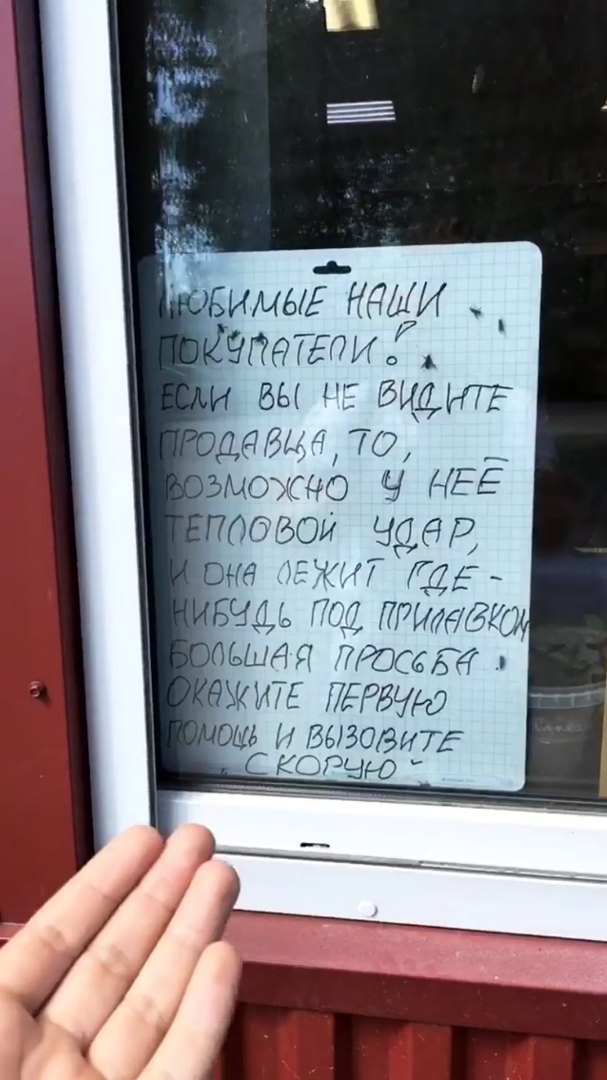 ЛЮБИМЫЕ НАШИ
ПОКУПАТЕЛИ!
ЕСЛИ ВЫ НЕ ВИДИТЕ
ПРОДАВЦА, ТО,
ВОЗМОЖНО У НЕЁ
ТЕПЛОВОЙ УДАР,
И ОНА ЛЕЖИТ ГДЕ-
НИБУДЬ ПОД ПРИЛАВКОМ
БОЛЬШАЯ ПРОСЬБА
ОКАЖИТЕ ПЕРВУЮ
ПОМОЩЬ И ВЫЗОВИТЕ
СКОРУЮ